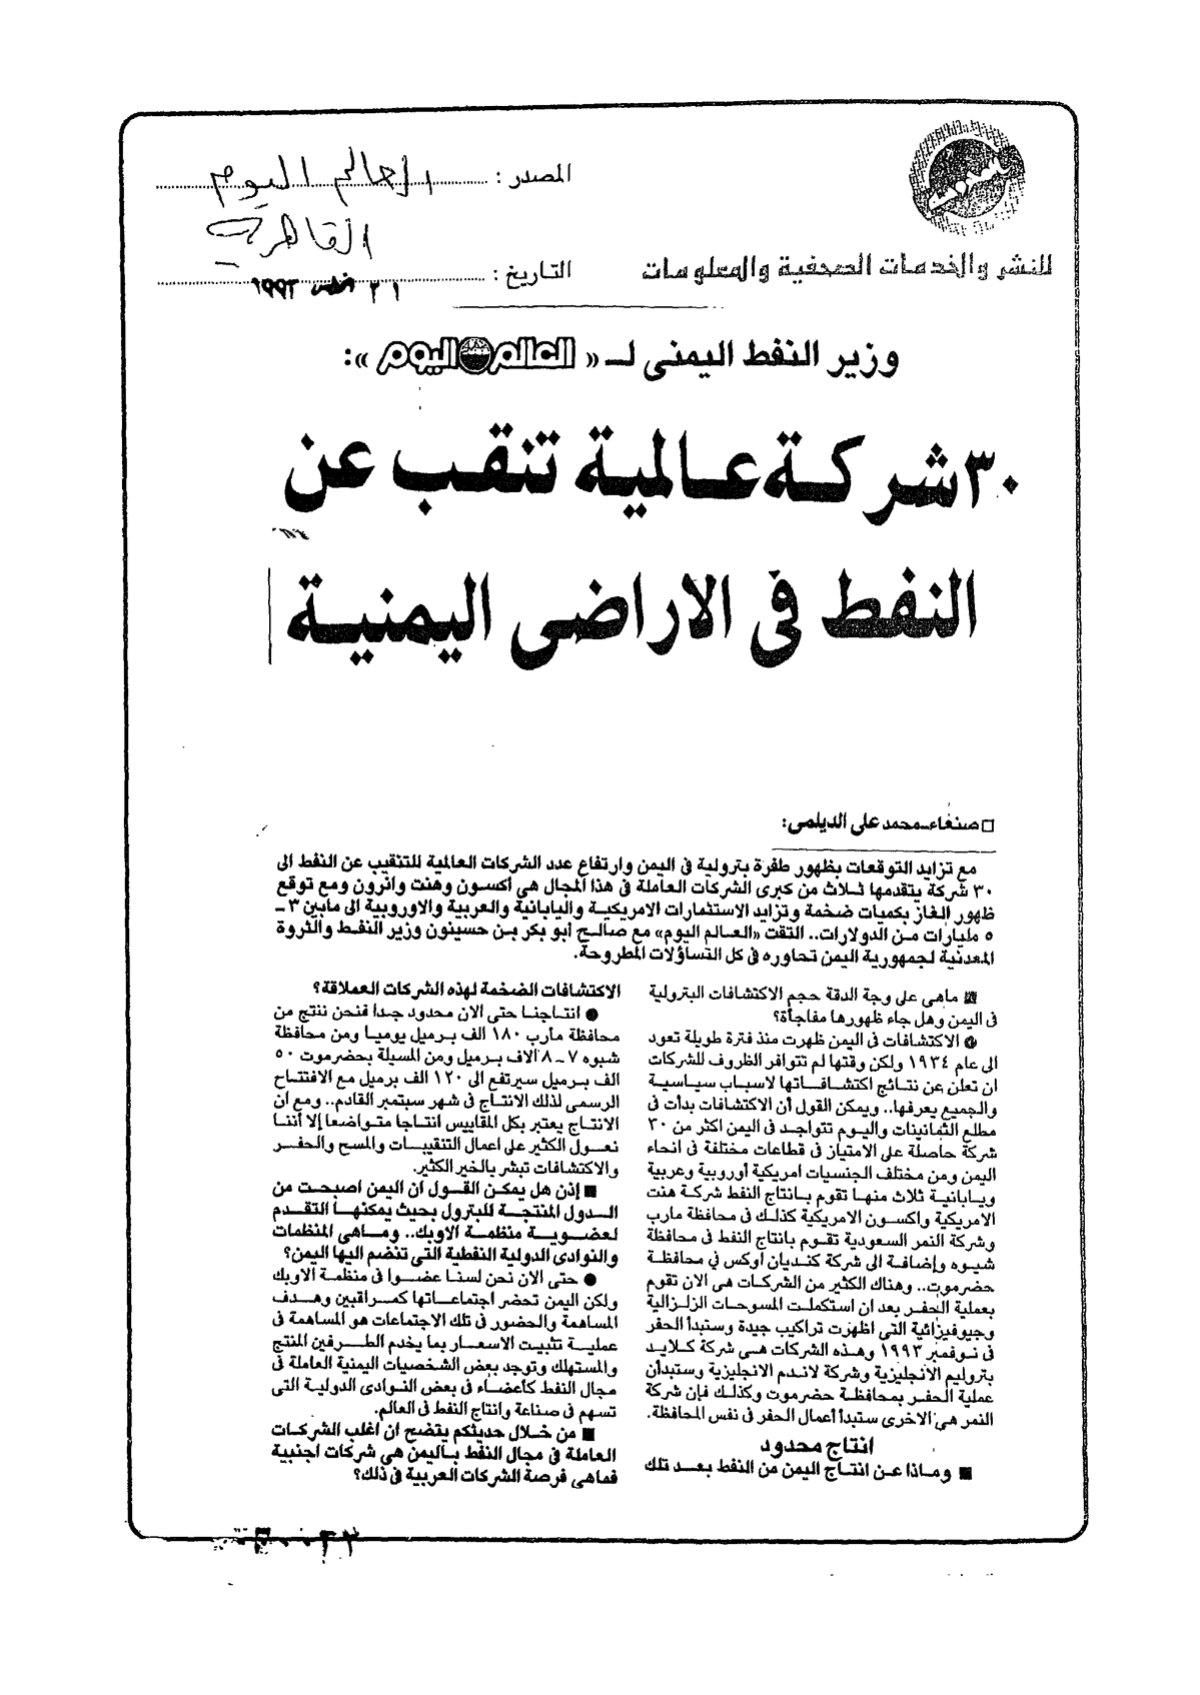 المصدر : العالم اليوم
القاهرة
للنشر والخدمات الصحفية والمعلومات
التاريخ : ٣١ ١٩٩٣
وزير النفط اليمنى لـ « العالم اليوم »:
٣٠ شركة عالمية تنقب عن
النفط فى الاراضى اليمنية
□ صنعاء ـ محمد على الديلمى:
مع تزايد التوقعات بظهور طفرة بترولية فى اليمن وارتفاع عدد الشركات العالمية للتنقيب عن النفط الى
٣٠ شركة يتقدمها ثلاث من كبرى الشركات العاملة فى هذا المجال هى اكسون وهنت وانرون ومع توقع
ظهور الغاز بكميات ضخمة وتزايد الاستثمارات الامريكية واليابانية والعربية والاوروبية الى مابين ٣ ـ
٥ مليارات من الدولارات.. التقت «العالم اليوم» مع صالح أبو بكر بن حسينون وزير النفط والثروة
المعدنية لجمهورية اليمن تحاوره فى كل التساؤلات المطروحة.
■ ماهى على وجة الدقة حجم الاكتشافات البترولية
فى اليمن وهل جاء ظهورها مفاجأة؟
● الاكتشافات فى اليمن ظهرت منذ فترة طويلة تعود
الى عام ١٩٣٤ ولكن وقتها لم تتوافر الظروف للشركات
ان تعلن عن نتائج اكتشافاتها لاسباب سياسية
والجميع يعرفها.. ويمكن القول أن الاكتشافات بدأت فى
مطلع الثمانينات واليوم تتواجد فى اليمن اكثر من ٣٠
شركة حاصلة على الامتياز فى قطاعات مختلفة فى انحاء
اليمن ومن مختلف الجنسيات امريكية أوروبية وعربية
ويابانية ثلاث منها تقوم بانتاج النفط شركة هنت
الامريكية واكسون الامريكية كذلك فى محافظة مارب
وشركة النمر السعودية تقوم بانتاج النفط فى محافظة
شبوه وإضافة الى شركة كنديان اوكس في محافظة
حضرموت.. وهناك الكثير من الشركات هى الان تقوم
بعملية الحفر بعد ان استكملت المسوحات الزلزالية
وجيوفيزائية التى اظهرت تراكيب جيدة وستبدأ الحفر
فى نوفمبر ١٩٩٣ وهذه الشركات هى شركة كلايد
بتروليم الانجليزية وشركة لاندم الانجليزية وستبدأن
عملية الحفر بمحافظة حضرموت وكذلك فإن شركة
النمر هى الاخرى ستبدأ أعمال الحفر فى نفس المحافظة.
انتاج محدود
■ وماذا عن انتاج اليمن من النفط بعد تلك
الاكتشافات الضخمة لهذه الشركات العملاقة؟
● انتاجنا حتى الان محدود جدا فنحن ننتج من
محافظة مأرب ١٨٠ الف برميل يوميا ومن محافظة
شبوه ٧ ـ ٨ الاف برميل ومن المسيلة بحضرموت ٥٠
الف برميل سيرتفع الى ١٢٠ الف برميل مع الافتتاح
الرسمى لذلك الانتاج فى شهر سبتمبر القادم.. ومع ان
الانتاج يعتبر بكل المقاييس انتاجا متواضعا إلا أننا
نعول الكثير على اعمال التنقيبات والمسح والحفر
والاكتشافات تبشر بالخير الكثير.
■ إذن هل يمكن القول ان اليمن اصبحت من
الدول المنتجة للبترول بحيث يمكنها التقدم
لعضوية منظمة الاوبك.. وماهى المنظمات
والنوادى الدولية النفطية التى تنضم اليها اليمن؟
● حتى الان نحن لسنا عضوا فى منظمة الاوبك
ولكن اليمن تحضر اجتماعاتها كمراقبين وهدف
المساهمة والحضور فى تلك الاجتماعات هو المساهمة فى
عملية تثبيت الاسعار بما يخدم الطرفين المنتج
والمستهلك وتوجد بعض الشخصيات اليمنية العاملة فى
مجال النفط كأعضاء فى بعض النوادى الدولية التى
تسهم فى صناعة وانتاج النفط فى العالم.
■ من خلال حديثكم يتضح ان اغلب الشركات
العاملة فى مجال النفط باليمن هى شركات اجنبية
فماهى فرصة الشركات العربية فى ذلك؟